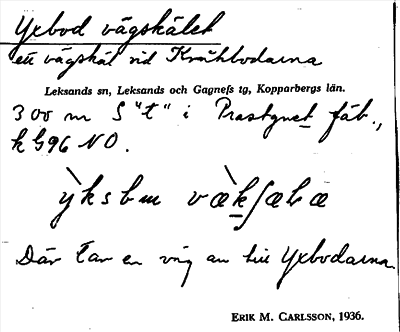 Yxbod vägskälet
ett vägskäl vid Kråkbodarna
Leksands sn, Leksands och Gagnefs tg, Kopparbergs län.
300 m S "t" i Prastgnet fäb.,
k G96 NO.
ỳksbm væ̀kʃæłæ
Där tar en väg av till Yxbodarna.
ERIK M. CARLSSON, 1936.